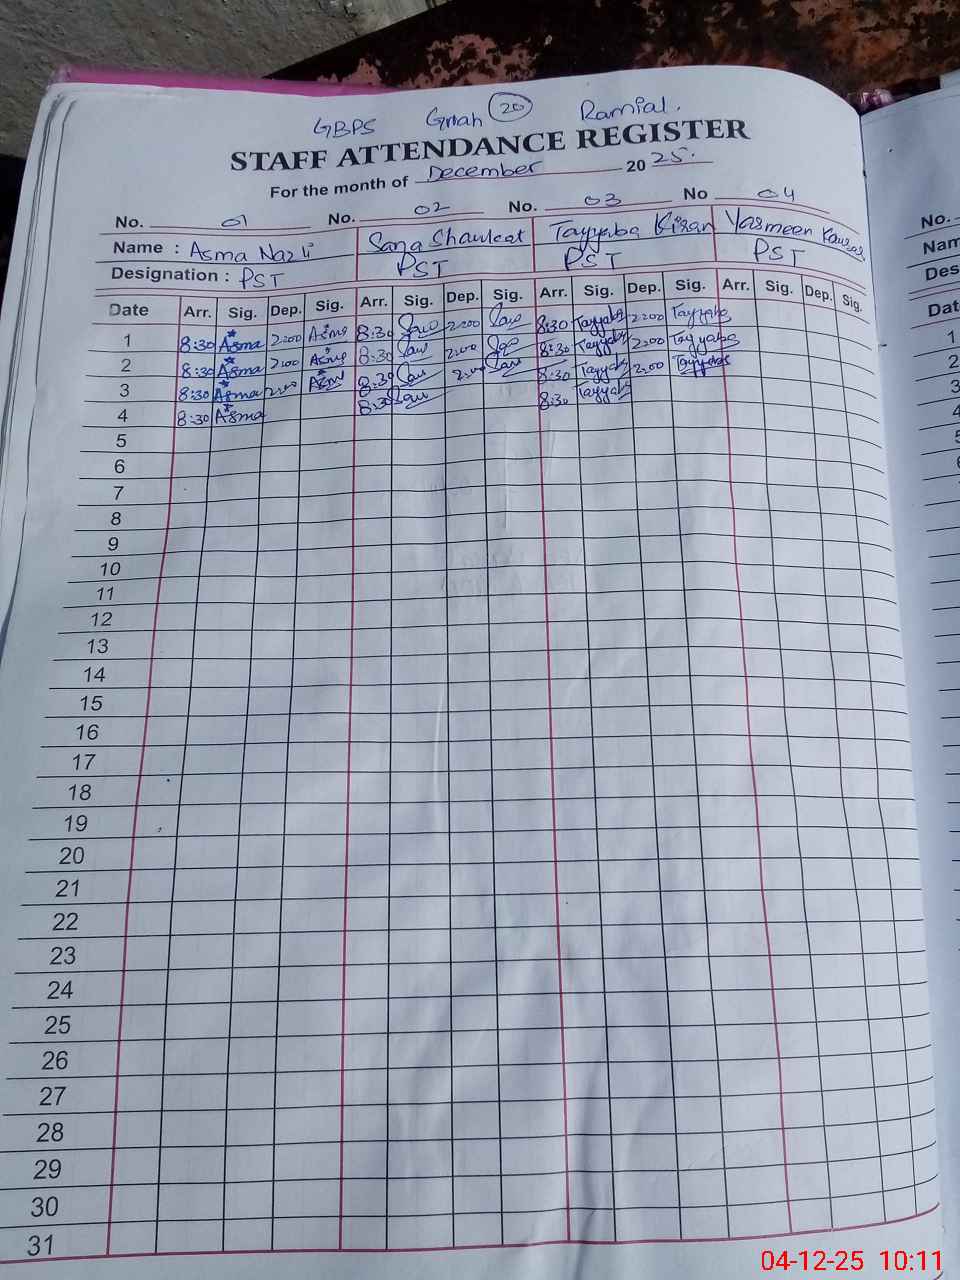 GBPS Grrah 20 Ramial.
STAFF ATTENDANCE REGISTER
For the month of December 2025.
No. 01 No. 02 No. 03 No 04
Name : Asma Nazli Sana Shaukat Tayyaba Kiran Yasmeen Kausar
Designation : PST PST PST PST
Date Arr. Sig. Dep. Sig. Arr. Sig. Dep. Sig. Arr. Sig. Dep. Sig. Arr. Sig. Dep. Sig.
1 8:30 Asma 2:00 Asma 8:30 2:00 8:30 Tayyaba 2:00 Tayyaba
2 8:30 Asma 2:00 Asma 8:30 2:00 8:30 Tayyaba 2:00 Tayyaba
3 8:30 Asma 2:00 Asma 8:30 2:00 8:30 Tayyaba 2:00 Tayyaba
4 8:30 Asma 8:30 8:30 Tayyaba
5
6
7
8
9
10
11
12
13
14
15
16
17
18
19
20
21
22
23
24
25
26
27
28
29
30
31
No.
Nam
Des
Dat
1
2
3
4
5
04-12-25 10:11